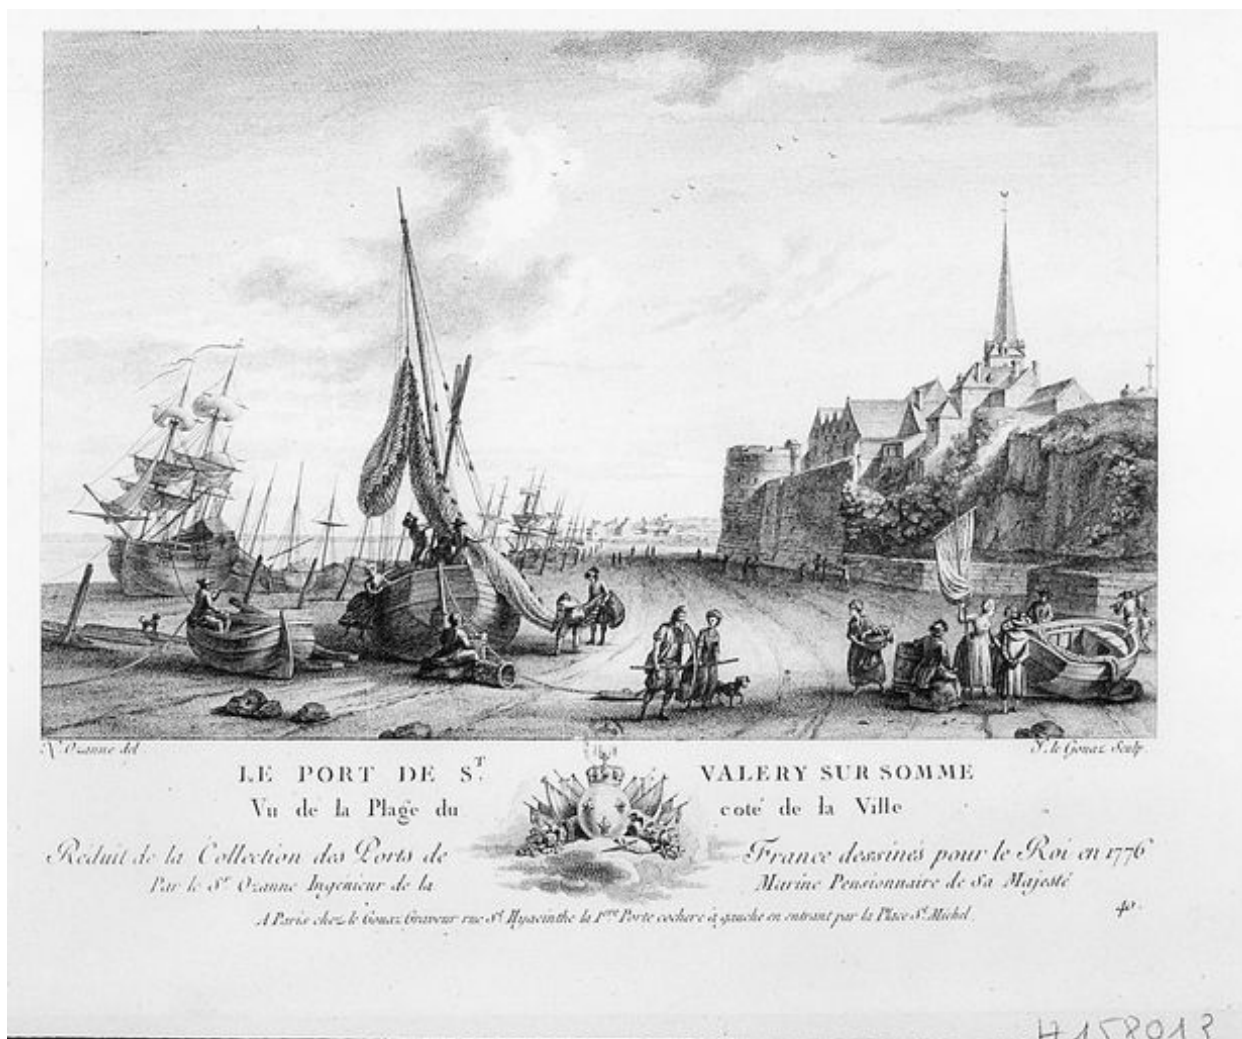 N. Ozanne del
Y. le Gouaz Sculp.
LE PORT DE S.T VALERY SUR SOMME
Vu de la Plage du coté de la Ville
Réduit de la Collection des Ports de France dessinés pour le Roi en 1776
Par le S.r Ozanne Ingénieur de la Marine Pensionnaire de Sa Majesté
A Paris chez le Gouaz Graveur rue S.t Hyacinthe la 1.ere Porte cochere à gauche en entrant par la Place S.t Michel.
40.
H 158013